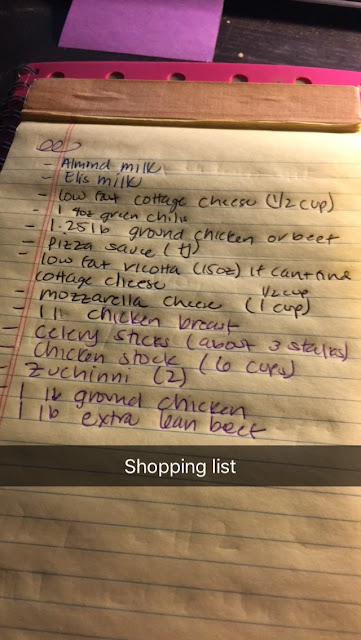 - Almond milk
- Elis milk
- low fat cottage cheese (1/2 cup)
- 1 4oz green chilis
- 1.25lb ground chicken or beef
- Pizza sauce (TJ)
low fat ricotta (15oz) if cant find
- cottage cheese 1/2 cup
- mozzarella cheese (1 cup)
- 1 lb chicken breast
- Celery sticks (about 3 stalks)
- Chicken stock (6 cups)
- Zuchinni (2)
- 1 lb ground chicken
- 1 lb extra lean beef
Shopping list